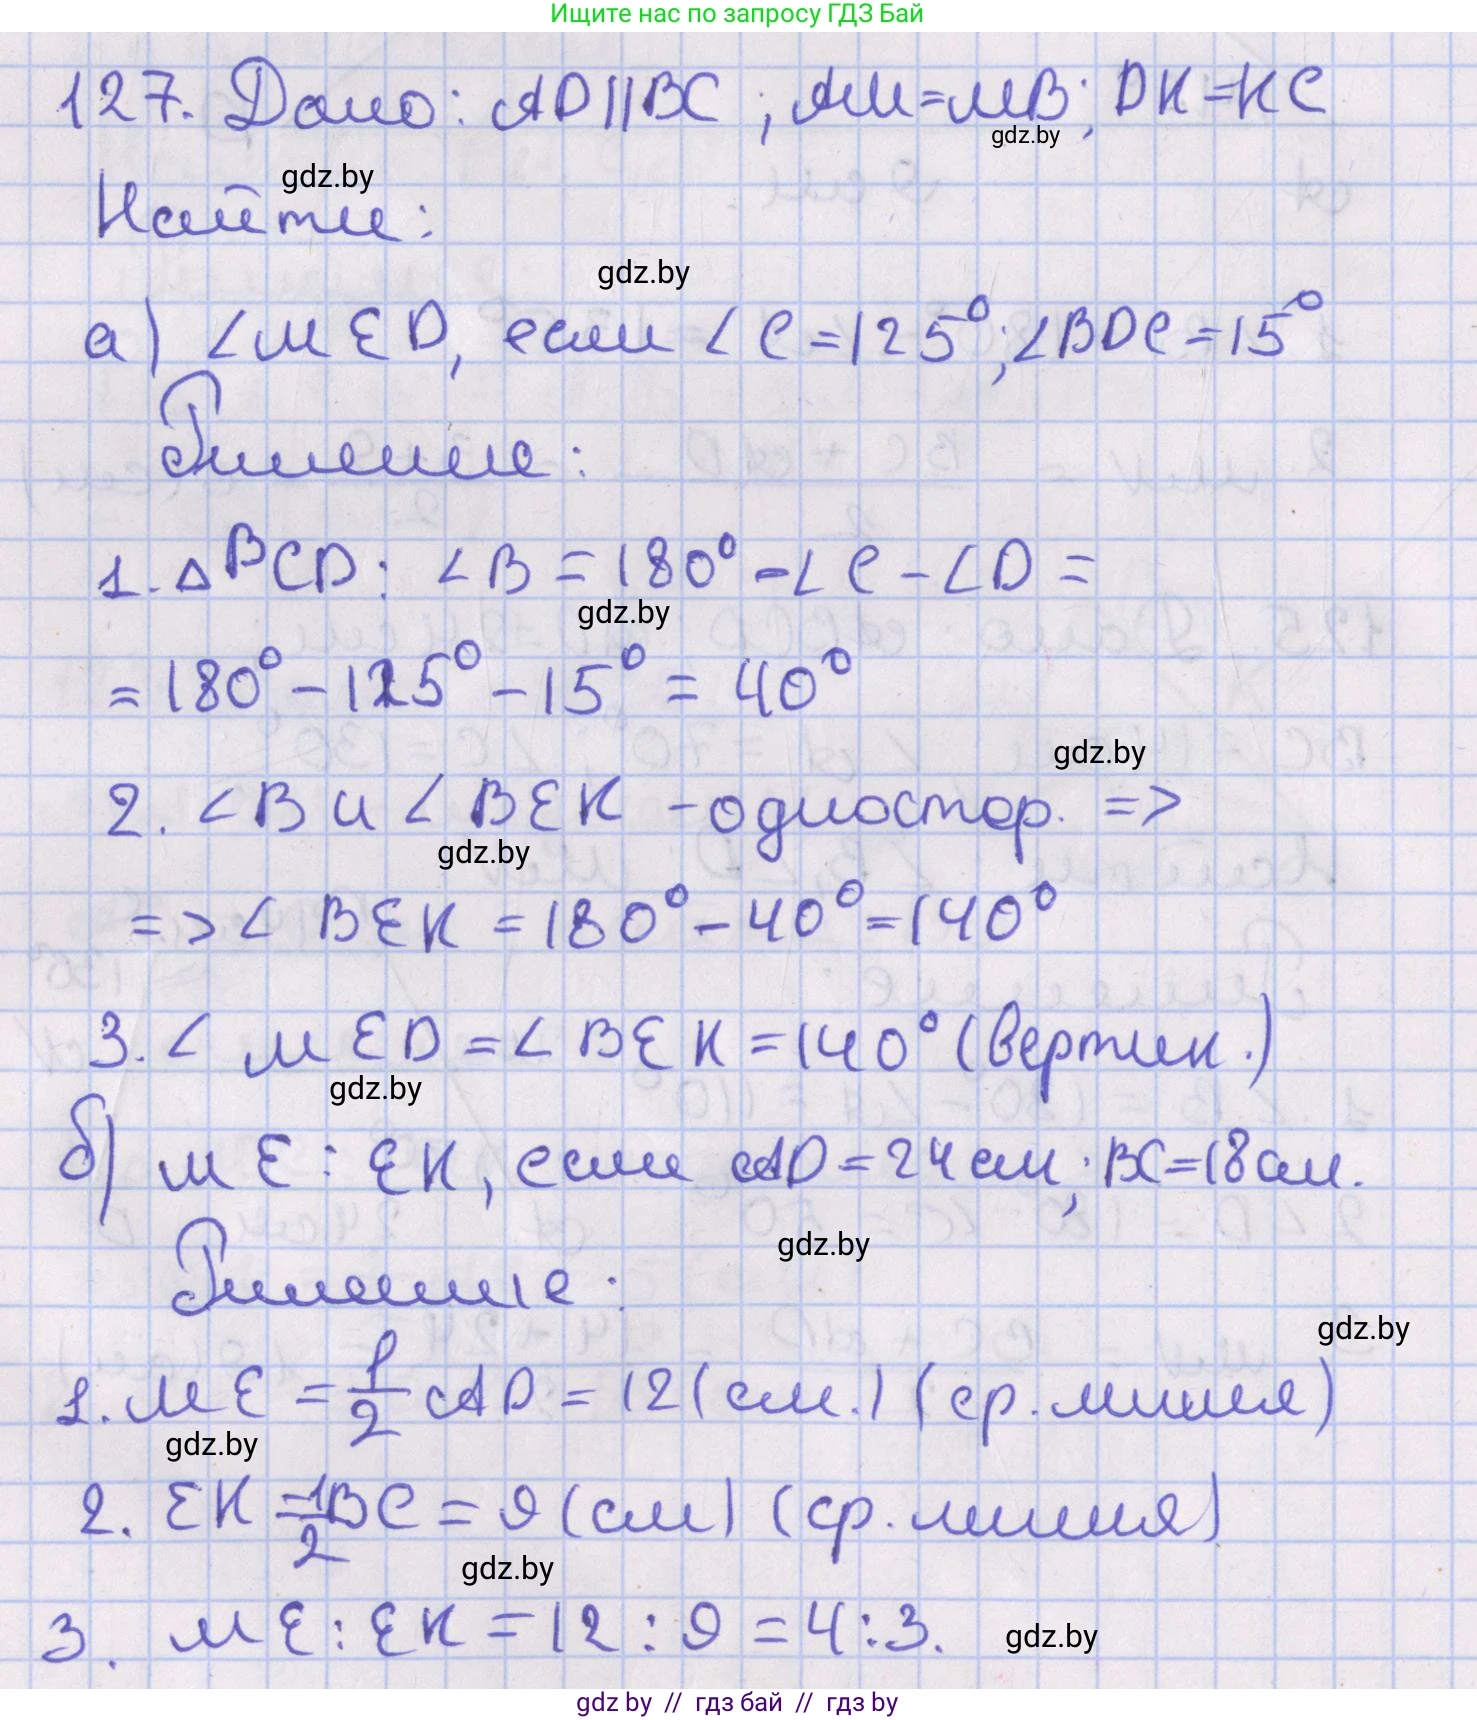 Ищите нас по запросу ГДЗ Бай
127. Дано: AD||BC; AM=MB; DK=KC
gdz.by
gdz.by
Найти:
gdz.by
а) ∠MED, если ∠C=125°; ∠BDC=15°
Решение:
1. △BCD: ∠B = 180° - ∠C - ∠D =
gdz.by
= 180° - 125° - 15° = 40°
gdz.by
2. ∠B и ∠BEK - одностор. =>
gdz.by
=> ∠BEK = 180° - 40° = 140°
3. ∠MED = ∠BEK = 140° (вертик.)
gdz.by
б) ME : EK, если AD = 24 см; BC = 18 см.
gdz.by
Решение:
gdz.by
1. ME = 1/2 AD = 12 (см.) (ср. линия)
gdz.by
2. EK = 1/2 BC = 9 (см) (ср. линия)
gdz.by
3. ME : EK = 12 : 9 = 4:3.
gdz.by
gdz by // гдз бай // гдз by